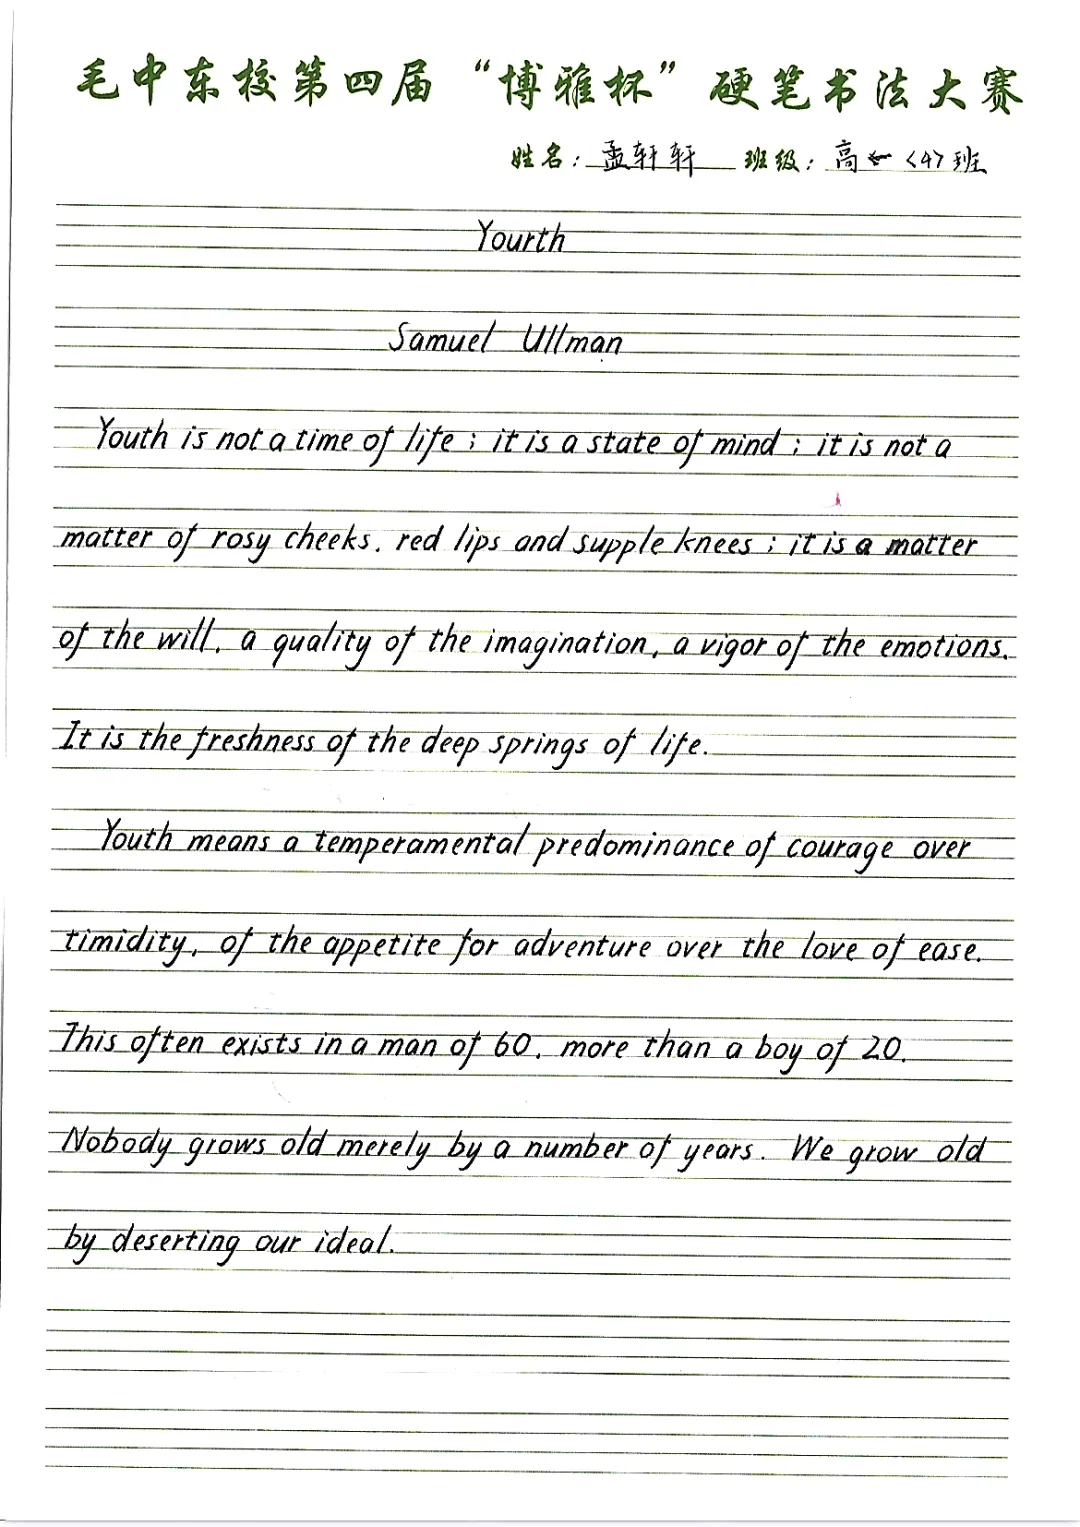 毛中东校第四届“博雅杯”硬笔书法大赛
姓名：孟轩轩 班级：高一〈4〉班
Yourth
Samuel Ullman
Youth is not a time of life ; it is a state of mind ; it is not a
matter of rosy cheeks, red lips and supple knees ; it is a matter
of the will, a quality of the imagination, a vigor of the emotions.
It is the freshness of the deep springs of life.
Youth means a temperamental predominance of courage over
timidity, of the appetite for adventure over the love of ease.
This often exists in a man of 60, more than a boy of 20.
Nobody grows old merely by a number of years. We grow old
by deserting our ideal.